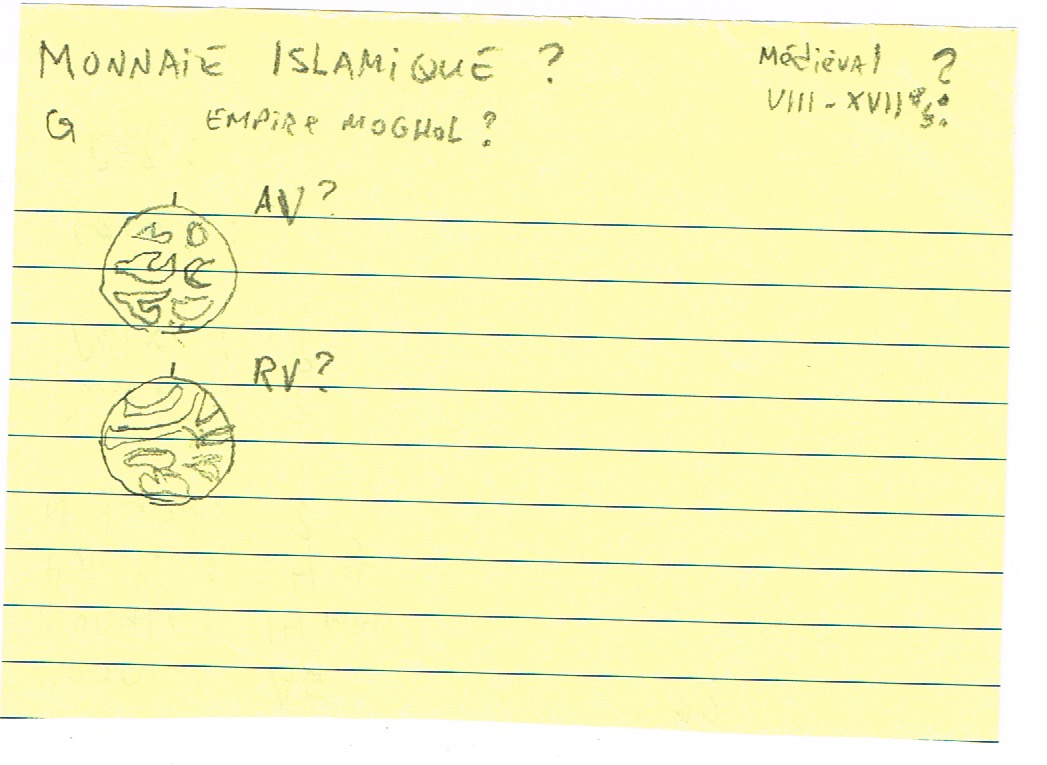 MONNAIE ISLAMIQUE ?
Médiéval ?
VIII - XVII
G
EMPIRE MOGHOL ?
AV ?
RV ?